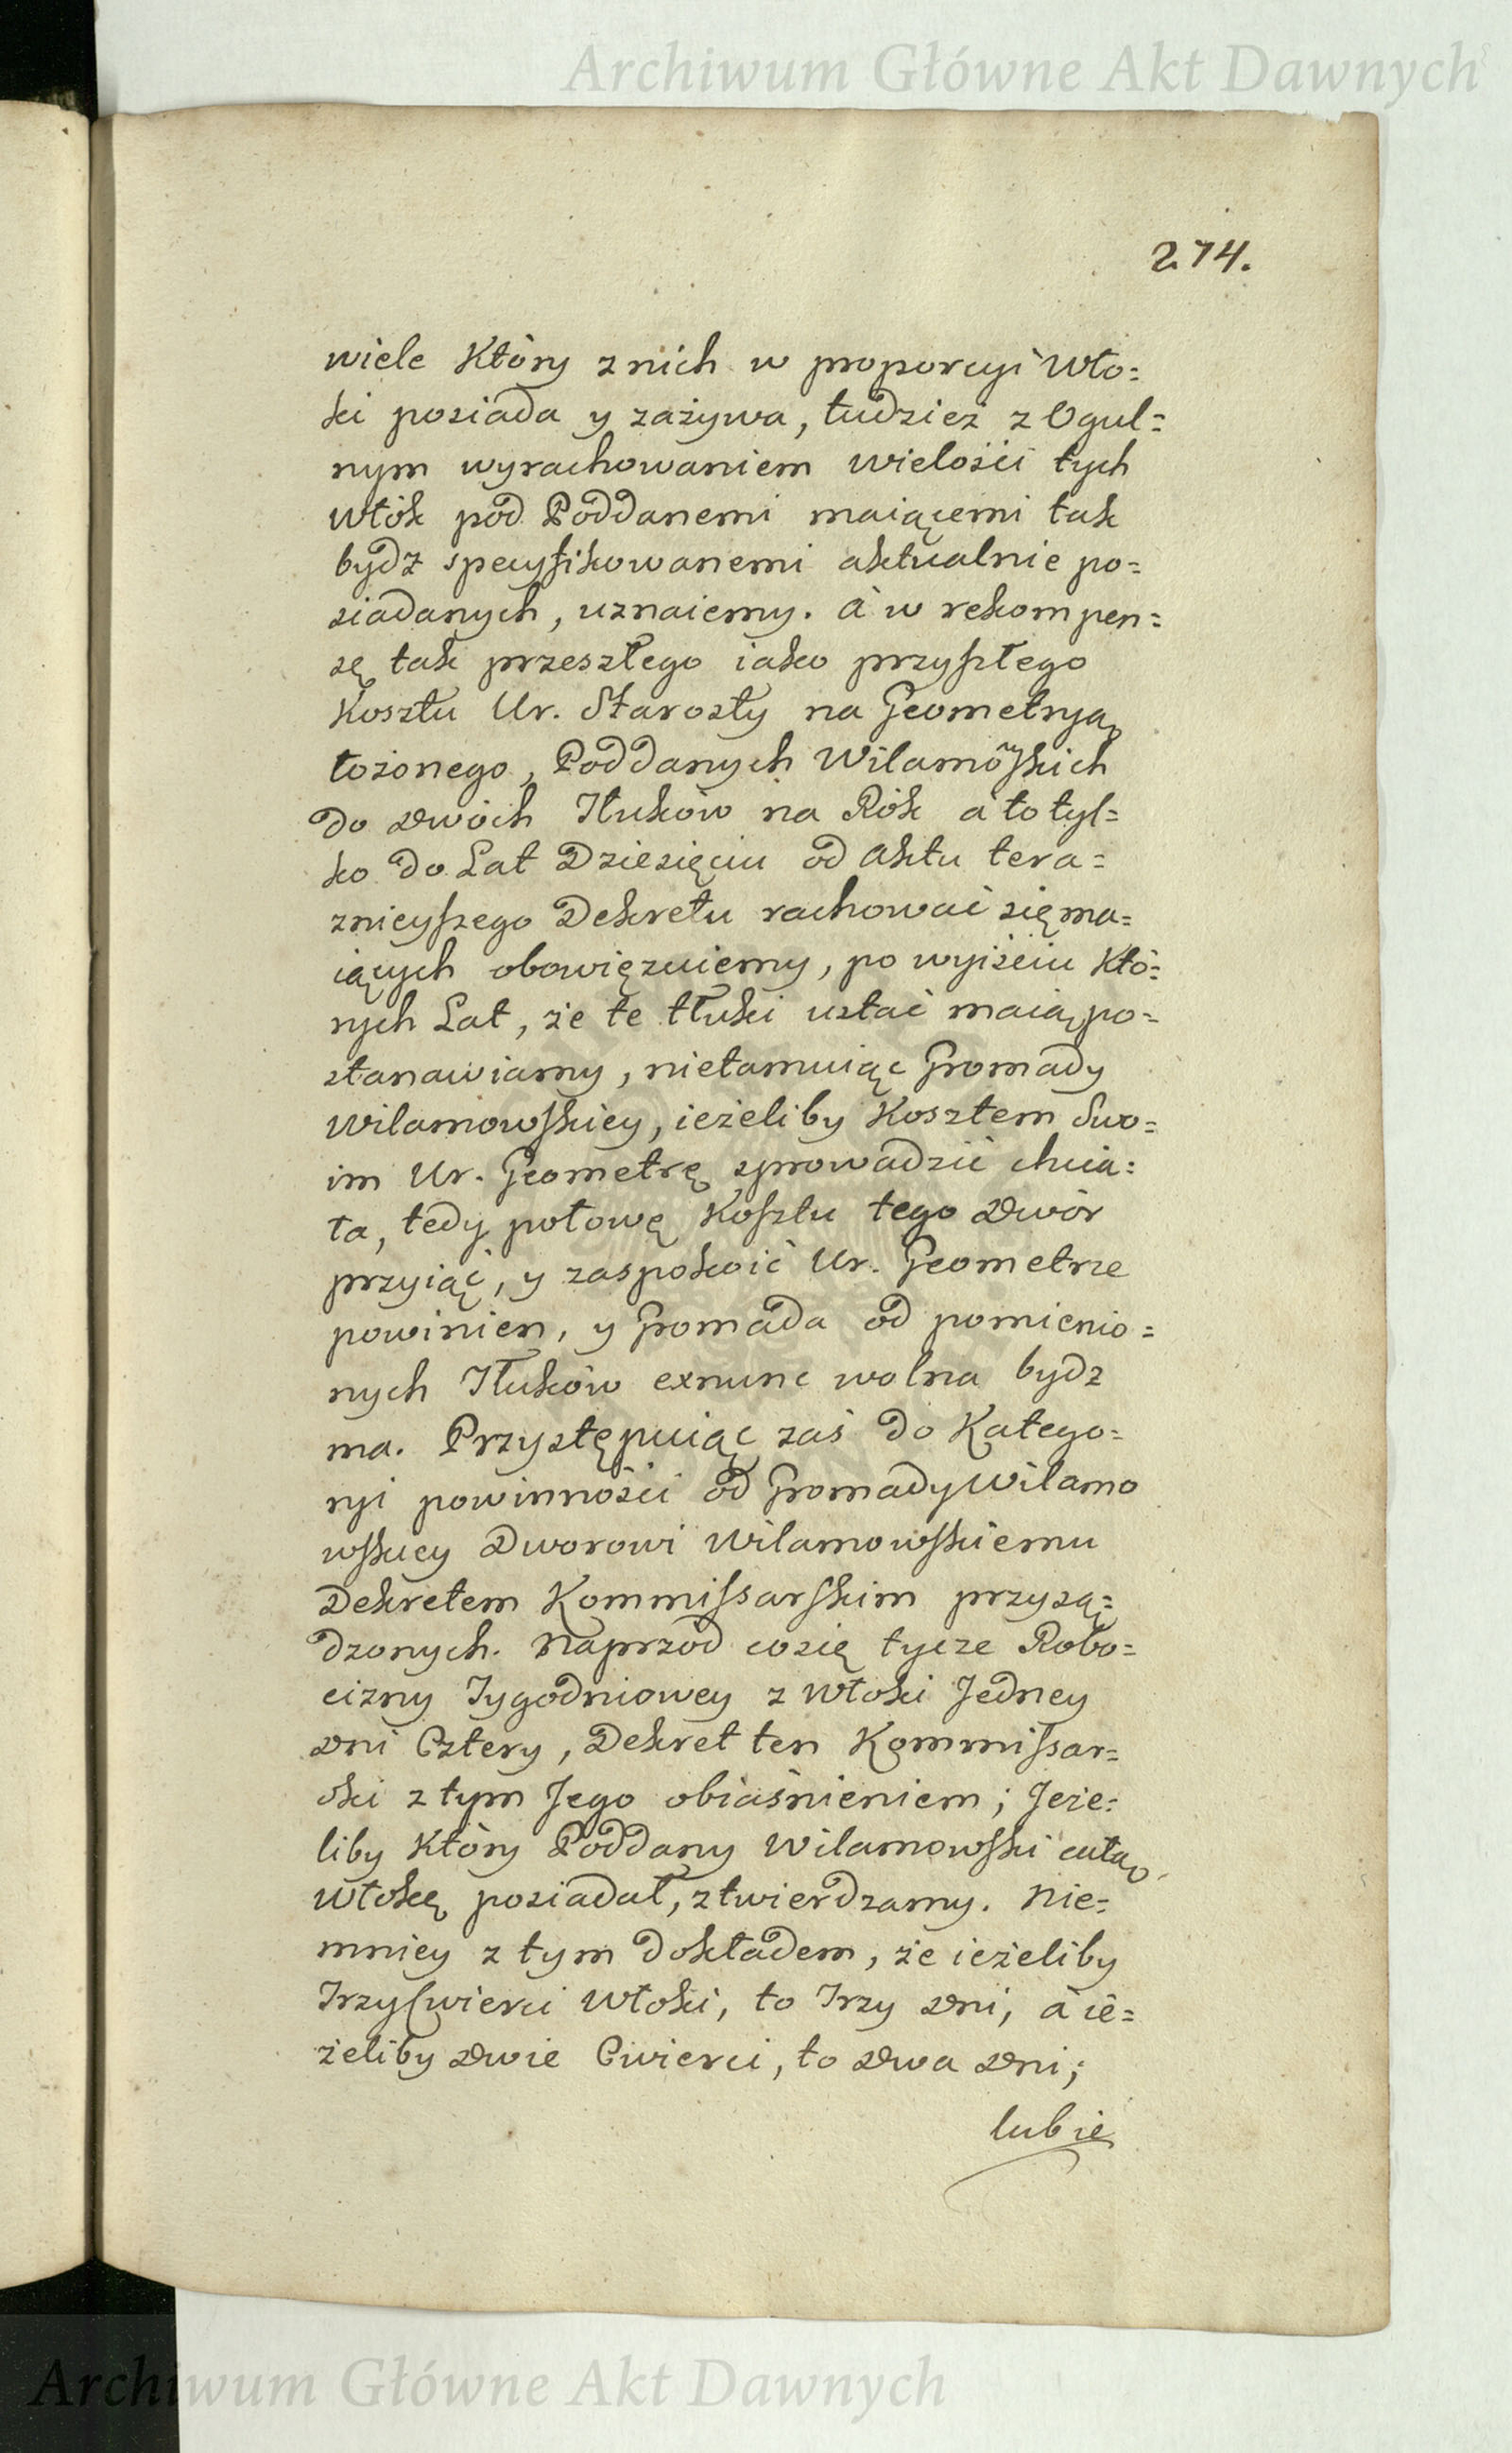 Archiwum Główne Akt Dawnych
274.
wiele Który z nich w proporcyi Wło=
ki posiada y zażywa, tudzież z Ogul=
nym wyrachowaniem wielości tych
Włók pod Poddanemi maiącemi tak
bydź specyfikowanemi aktualnie po=
siadanych, uznaiemy. à w rekompen=
sę tak przeszłego iako przyszłego
Kosztu Ur. Starosty na Geometryą
łożonego, Poddanych Wilamowskich
do dwóch Tłuków na Rok à to tyl=
ko do Lat Dziesięciu od Aktu tera=
znieyszego Dekretu rachować się ma=
iących obowięzuiemy, po wyiściu Któ=
rych Lat, że te tłuki ustać maią po=
stanawiamy, nietamuiąc Gromady
Wilamowskiey, ieżeliby Kosztem Swo=
im Ur. Geometrę sprowadzić chcia=
ła, tedy połowę Kosztu tego dwór
przyiąć, y zaspokoić Ur. Geometrze
powinien, y Gromada od pomienio=
nych Tłuków exnunc wolna bydz
ma. Przystępuiąc zaś do Katego=
ryi powinności od Gromady Wilamo
wskiey Dworowi Wilamowskiemu
Dekretem Kommissarskim przysą=
dzonych. Naprzód co się tycze Robo=
cizny Tygodniowey z Włoki Jedney
dni Cztery, Dekret ten Kommissar=
ski z tym Jego obiaśnieniem; Jeże=
liby Który Poddany Wilamowski całą
Włokę posiadał, ztwierdzamy. Nie=
mniey z tym dokładem, że ieżeliby
Trzy Cwierci Włoki, to Trzy dni, à ie=
żeliby dwie Cwierci, to dwa dni;
lub ie
Archiwum Główne Akt Dawnych